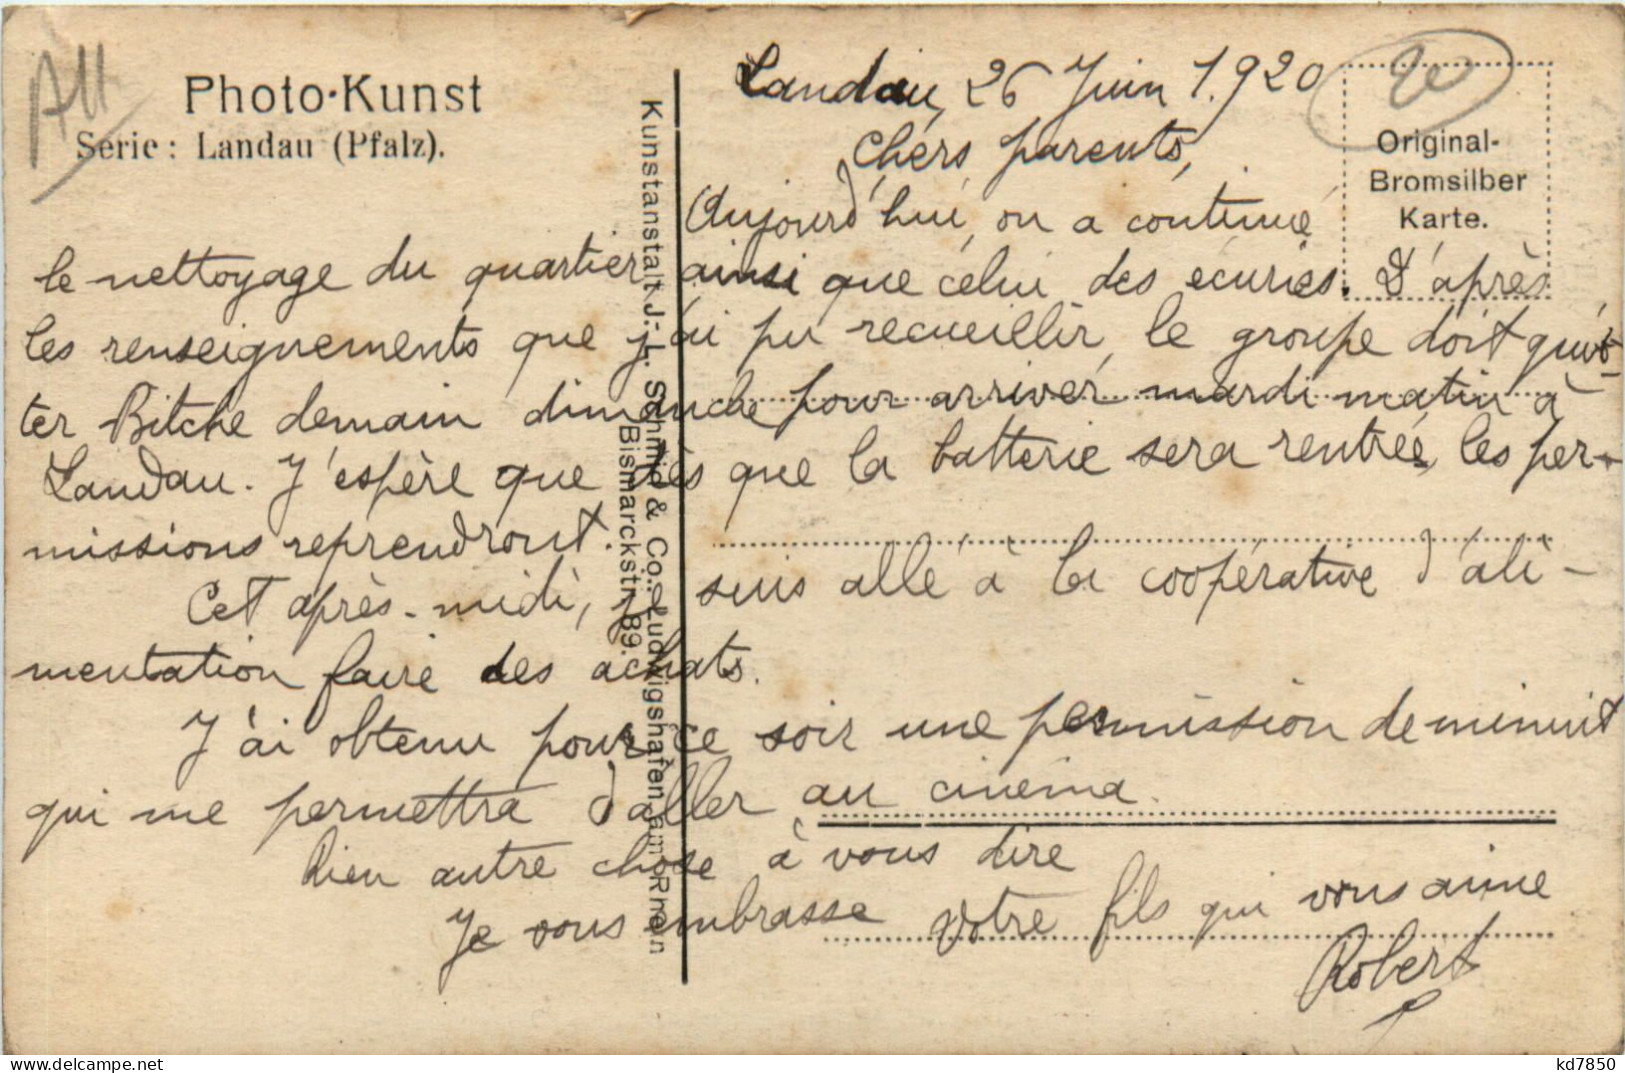 All
Photo-Kunst
Serie: Landau (Pfalz).
Original-
Bromsilber
Karte.
Kunstanstalt J. L. Schmid & Co., Ludwigshafen am Rhein
Bismarckstr. 89.
Landau, 26 Juin 1.920
Chers parents,
Aujourd'hui, on a continué
le nettoyage du quartier ainsi que celui des écuries. D'après
les renseignements que j'ai pu recueillir, le groupe doit quit-
ter Bitche demain dimanche pour arriver mardi matin à
Landau. J'espère que dès que la batterie sera rentrée, les per-
missions reprendront.
Cet après-midi, je suis allé à la coopérative d'ali-
mentation faire des achats.
J'ai obtenu pour ce soir une permission de minuit
qui me permettra d'aller au cinéma.
Rien autre chose à vous dire
Je vous embrasse votre fils qui vous aime
Robert
kd7850
delcampe.net